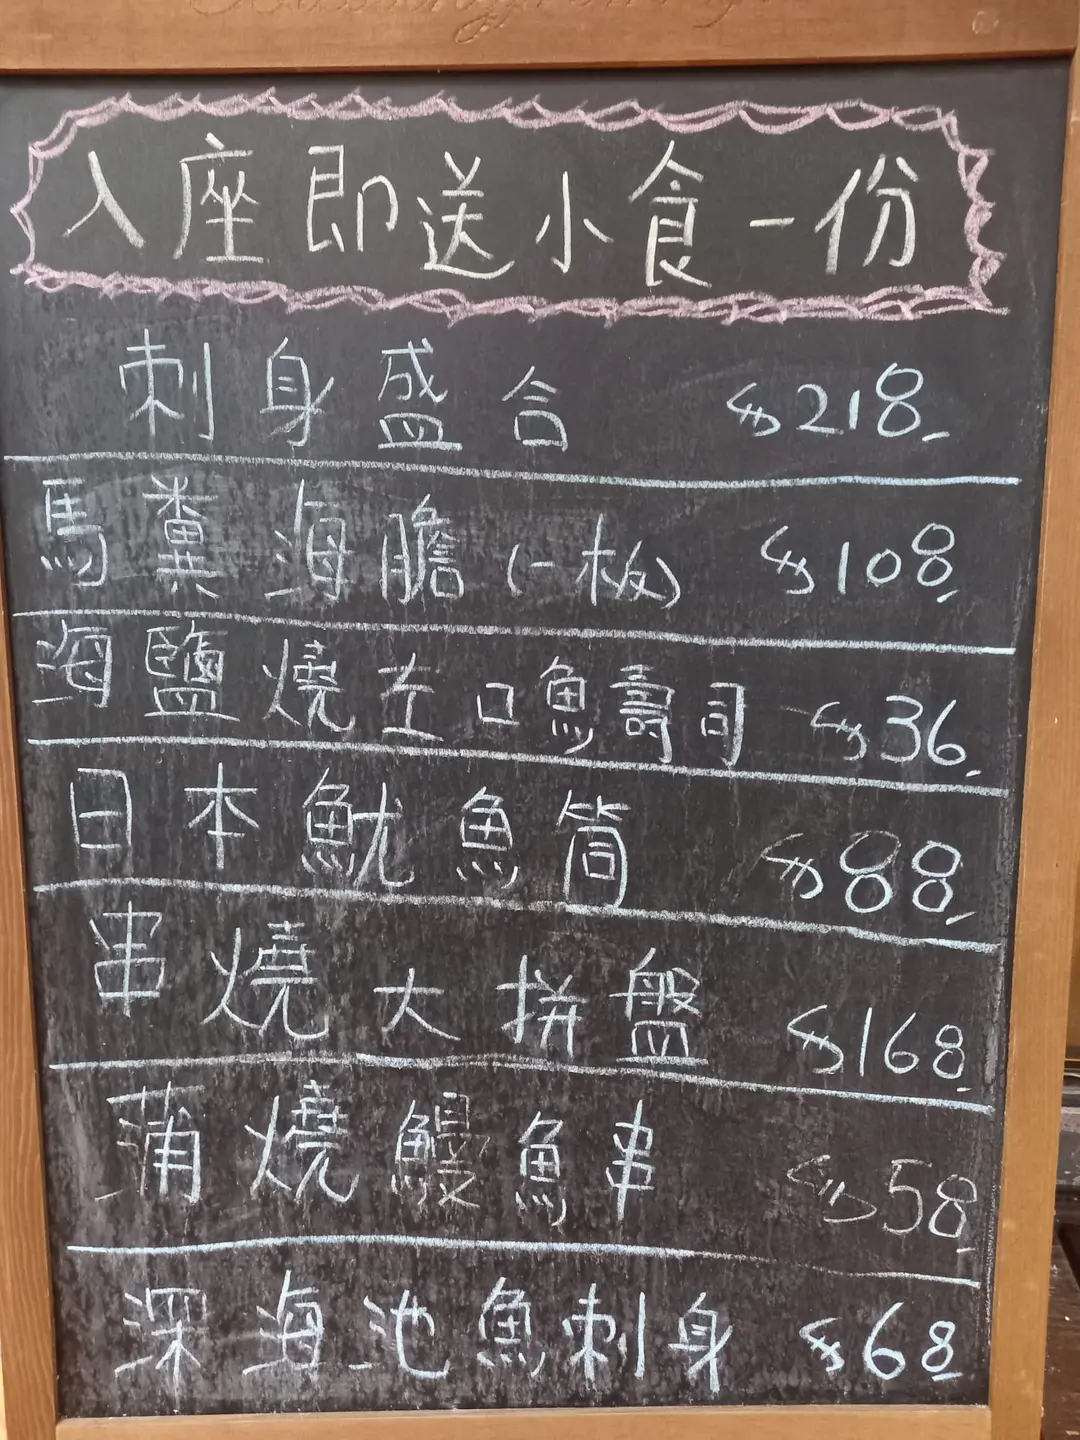 入座即送小食一份
刺身盛合 $218.
馬糞海膽(一板) $108.
海鹽燒左口魚壽司 $36.
日本魷魚筒 $88.
串燒大拼盤 $168.
蒲燒鰻魚串 $58.
深海池魚刺身 $68.